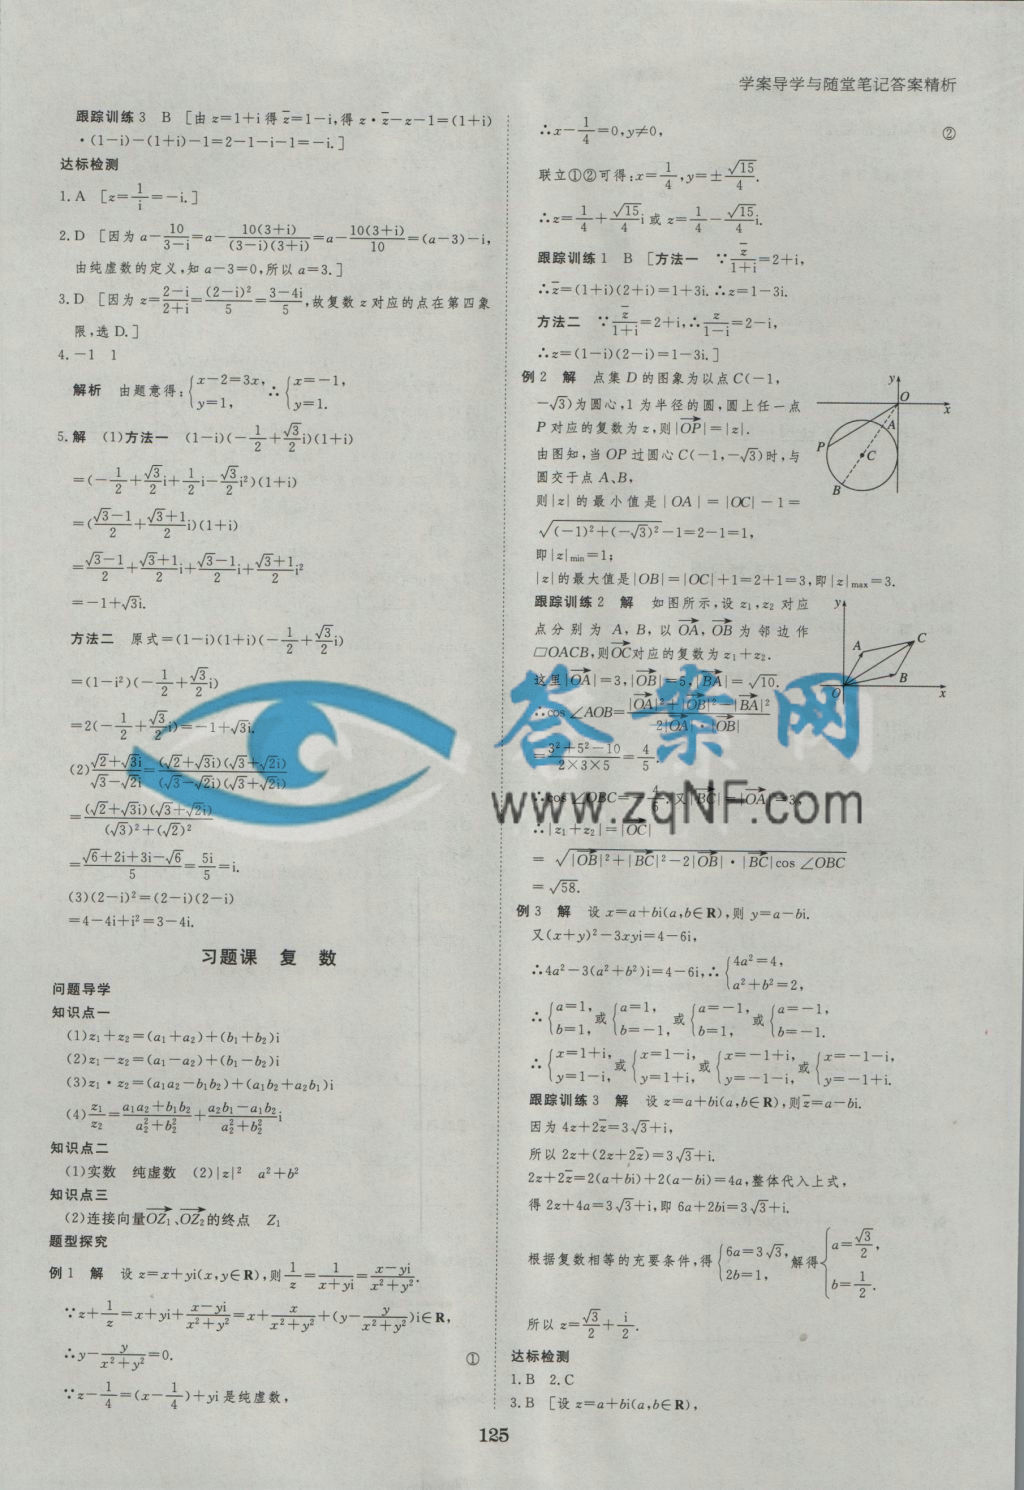 学案导学与随堂笔记答案精析
跟踪训练3 B [由z=1+i得z̄=1-i,得z·z̄-z-1=(1+i)
·(1-i)-(1+i)-1=2-1-i-1=-i.]
达标检测
1.A [z=1/i=-i.]
2.D [因为a-10/(3-i)=a-10(3+i)/((3-i)(3+i))=a-10(3+i)/10=(a-3)-i,
由纯虚数的定义,知a-3=0,所以a=3.]
3.D [因为z=(2-i)/(2+i)=(2-i)²/5=(3-4i)/5,故复数z对应的点在第四象
限,选D.]
4.-1 1
解析 由题意得:{x-2=3x, y=1, ∴{x=-1, y=1.
5.解 (1)方法一 (1-i)(-1/2+√3/2i)(1+i)
=(-1/2+√3/2i+1/2i-√3/2i²)(1+i)
=((√3-1)/2+(√3+1)/2i)(1+i)
=(√3-1)/2+(√3+1)/2i+(√3-1)/2i+(√3+1)/2i²
=-1+√3i.
方法二 原式=(1-i)(1+i)(-1/2+√3/2i)
=(1-i²)(-1/2+√3/2i)
=2(-1/2+√3/2i)=-1+√3i.
(2)(√2+√3i)/(√3-√2i)=(√2+√3i)(√3+√2i)/((√3-√2i)(√3+√2i))
=(√2+√3i)(√3+√2i)/((√3)²+(√2)²)
=(√6+2i+3i-√6)/5=5i/5=i.
(3)(2-i)²=(2-i)(2-i)
=4-4i+i²=3-4i.
习题课 复 数
问题导学
知识点一
(1)z₁+z₂=(a₁+a₂)+(b₁+b₂)i
(2)z₁-z₂=(a₁-a₂)+(b₁-b₂)i
(3)z₁·z₂=(a₁a₂-b₁b₂)+(a₁b₂+a₂b₁)i
(4)z₁/z₂=(a₁a₂+b₁b₂)/(a₂²+b₂²)+(a₂b₁-a₁b₂)/(a₂²+b₂²)i
知识点二
(1)实数 纯虚数 (2)|z|² a²+b²
知识点三
(2)连接向量OZ₁→、OZ₂→的终点 Z₁
题型探究
例1 解 设z=x+yi(x,y∈R),则1/z=1/(x+yi)=(x-yi)/(x²+y²).
∵z+1/z=x+yi+(x-yi)/(x²+y²)=x+x/(x²+y²)+(y-y/(x²+y²))i∈R,
∴y-y/(x²+y²)=0. ①
∵z-1/4=(x-1/4)+yi是纯虚数,
∴x-1/4=0,y≠0, ②
联立①②可得:x=1/4,y=±√15/4.
∴z=1/4+√15/4i或z=1/4-√15/4i.
跟踪训练1 B [方法一 ∵z̄/(1+i)=2+i,
∴z̄=(1+i)(2+i)=1+3i.∴z=1-3i.
方法二 ∵z̄/(1+i)=2+i,∴z/(1-i)=2-i,
∴z=(1-i)(2-i)=1-3i.]
例2 解 点集D的图象为以点C(-1,
-√3)为圆心,1为半径的圆,圆上任一点
P对应的复数为z,则|OP→|=|z|.
由图知,当OP过圆心C(-1,-√3)时,与
圆交于点A、B,
则|z|的最小值是|OA|=|OC|-1=
√((-1)²+(-√3)²)-1=2-1=1,
即|z|min=1;
|z|的最大值是|OB|=|OC|+1=2+1=3,即|z|max=3.
y
O
x
A
P
C
B
跟踪训练2 解 如图所示,设z₁,z₂对应
点分别为A,B,以OA→,OB→为邻边作
▱OACB,则OC→对应的复数为z₁+z₂.
这里|OA→|=3,|OB→|=5,|BA→|=√10.
∴cos∠AOB=(|OA→|²+|OB→|²-|BA→|²)/(2|OA→|·|OB→|)
=(3²+5²-10)/(2×3×5)=4/5.
∴cos∠OBC=-4/5.又|BC→|=|OA→|=3,
∴|z₁+z₂|=|OC→|
=√(|OB→|²+|BC→|²-2|OB→|·|BC→|cos∠OBC)
=√58.
y
A
C
B
O
x
例3 解 设x=a+bi(a,b∈R),则y=a-bi.
又(x+y)²-3xyi=4-6i,
∴4a²-3(a²+b²)i=4-6i,∴{4a²=4, a²+b²=2,
∴{a=1, b=1,或{a=1, b=-1,或{a=-1, b=1,或{a=-1, b=-1.
∴{x=1+i, y=1-i,或{x=1-i, y=1+i,或{x=-1+i, y=-1-i,或{x=-1-i, y=-1+i.
跟踪训练3 解 设z=a+bi(a,b∈R),则z̄=a-bi.
因为4z+2z̄=3√3+i,
所以2z+(2z+2z̄)=3√3+i.
2z+2z̄=2(a+bi)+2(a-bi)=4a,整体代入上式,
得2z+4a=3√3+i,即6a+2bi=3√3+i.
根据复数相等的充要条件,得{6a=3√3, 2b=1,解得{a=√3/2, b=1/2.
所以z=√3/2+i/2.
达标检测
1.B 2.C
3.B [设z=a+bi(a,b∈R),
125
答案网
www.zqNF.com